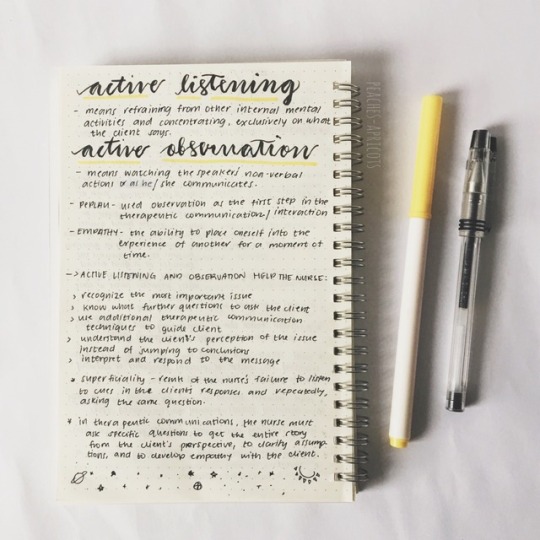 active listening
- means refraining from other internal mental
activities and concentrating, exclusively on what
the client says.
active observation
- means watching the speakers non-verbal
actions as he/she communicates.
- PEPLAU- used observation as the first step in the
therapeutic communication/interaction
- EMPATHY- the ability to place oneself into the
experience of another for a moment of
time.
-> ACTIVE LISTENING AND OBSERVATION HELP THE NURSE:
> recognize the most important issue
> know what further questions to ask the client
> use additional therapeutic communication
techniques to guide client
> understand the client's perception of the issue
instead of jumping to conclusions
> interpret and respond to the message
* superficiality - result of the nurse's failure to listen
to cues in the clients responses and repeatedly,
asking the same question.
* in therapeutic communications, the nurse must
ask specific questions to get the entire story
from the client's perspective, to clarify assump-
tions, and to develop empathy with the client.
PEACHES-APRICOTS